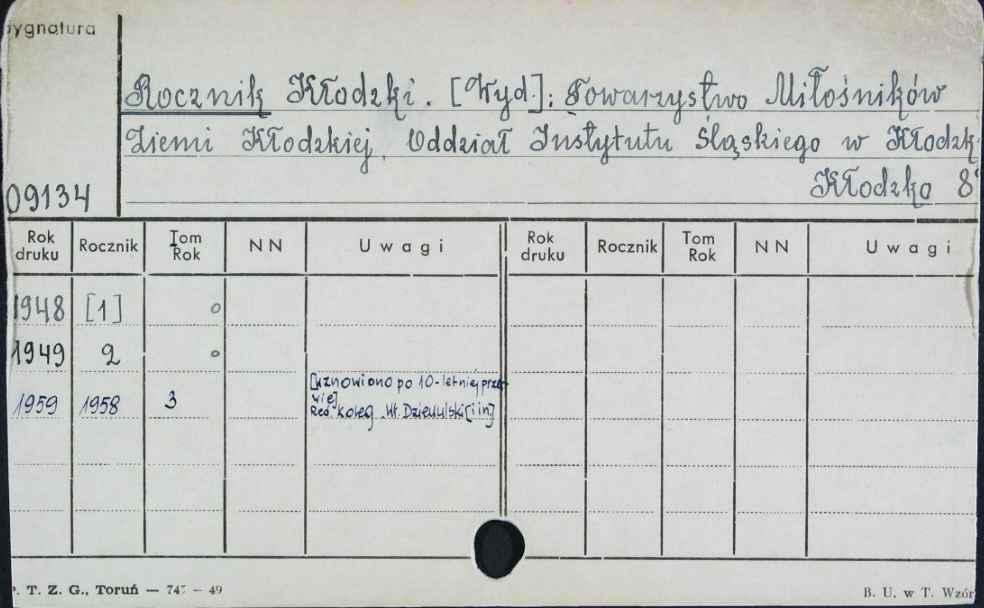 Sygnatura
Rocznik Kłodzki. [Wyd.]: Towarzystwo Miłośników
Ziemi Kłodzkiej. Oddział Instytutu Śląskiego w Kłodzk
Kłodzko 8°
09134
Rok druku Rocznik Tom Rok NN Uwagi Rok druku Rocznik Tom Rok NN Uwagi
1948 [1] o
1949 2 o
1959 1958 3 [wznowiono po 10-letniej przer
wie]
Red. koleg. Wł. Dziewulski [i in]
P. T. Z. G., Toruń — 747 — 49
B. U. w T. Wzór